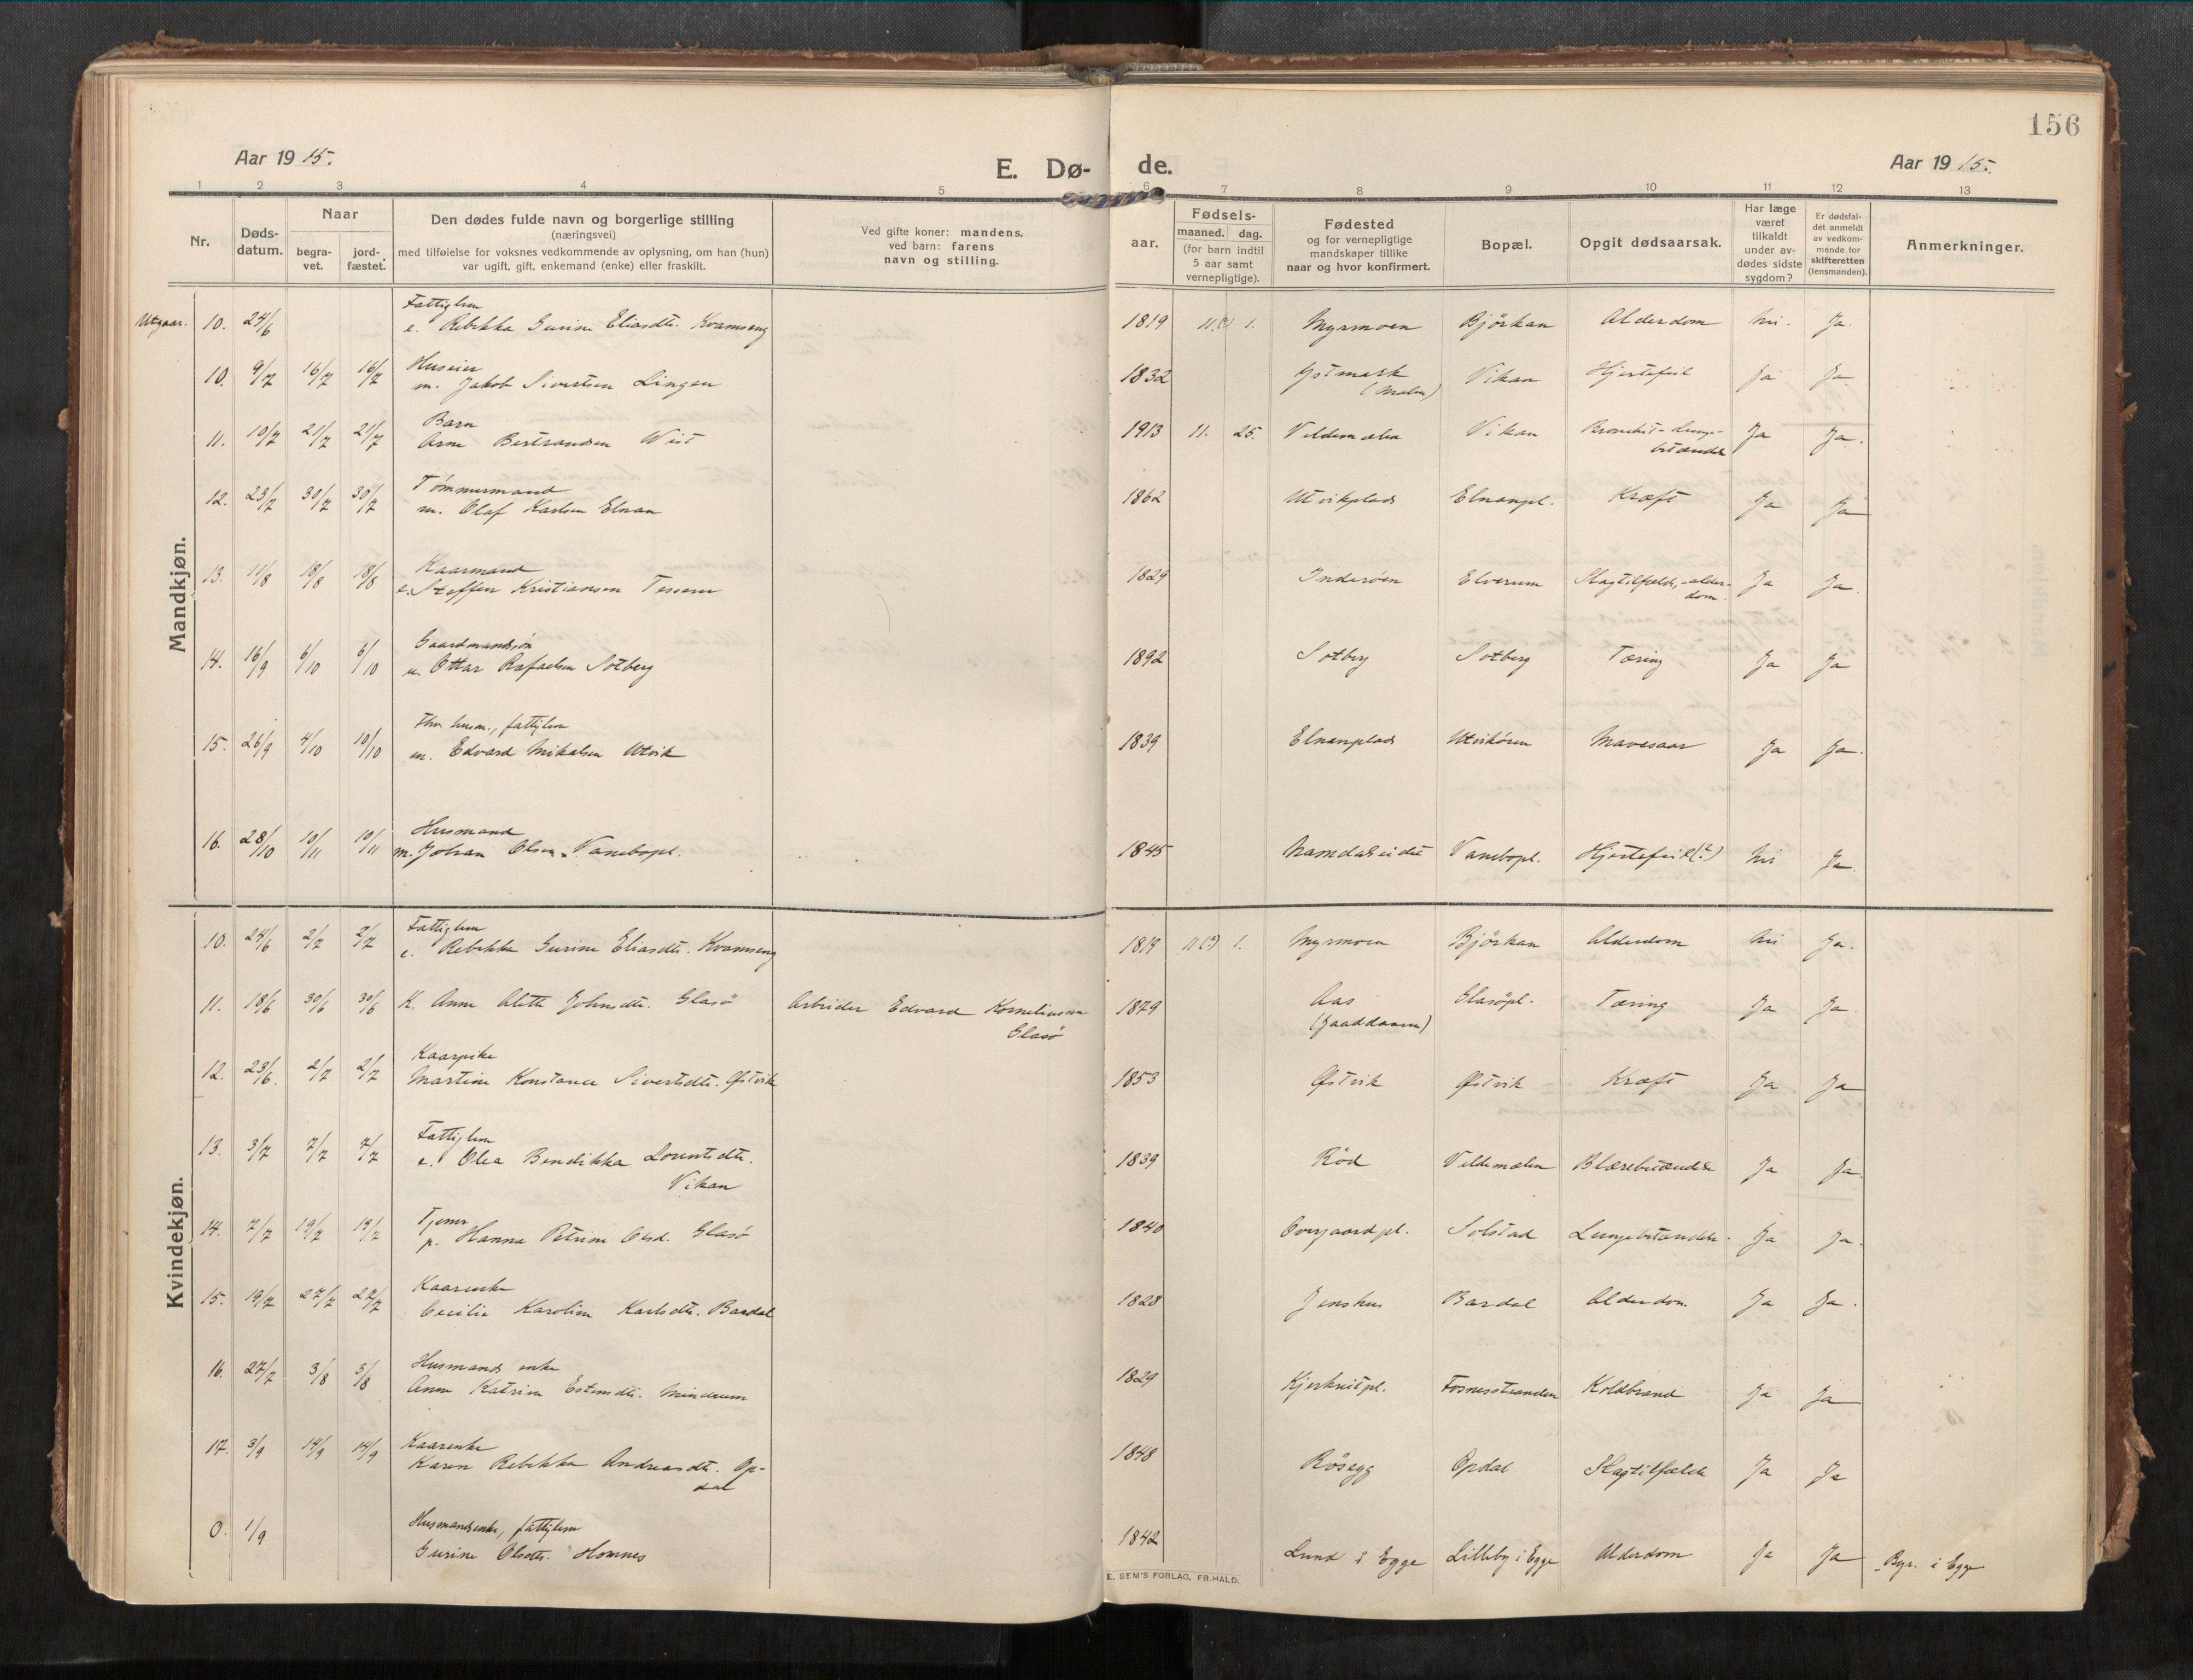 156
Aar 1915.
E. Døde.
Aar 1915.
1 2 3 4 5 6 7 8 9 10 11 12 13
Nr.
Dødsdatum.
Naar
begravet.
jordfæstet.
Den dødes fulde navn og borgerlige stilling
(næringsvei)
med tilføielse for voksnes vedkommende av oplysning, om han (hun)
var ugift, gift, enkemand (enke) eller fraskilt.
Ved gifte koner: mandens,
ved barn: farens
navn og stilling.
aar.
Fødsels-
maaned. dag.
(for barn indtil
5 aar samt
vernepligtige).
Fødested
og for vernepligtige
mandskaper tillike
naar og hvor konfirmert.
Bopæl.
Opgit dødsaarsak.
Har læge
været
tilkaldt
under av-
dødes sidste
sygdom?
Er dødsfal-
det anmeldt
av vedkom-
mende for
skifteretten
(lensmanden).
Anmerkninger.
Mandkjøn.
Fattiglem
Utgaar. 10. 24/6 e. Rebekka Gurine Eliasdtr. Kvamseng 1819 11.(?) 1. Myrmoen Bjørkan Alderdom Nei. Ja.
Huseier
10. 9/7 16/7 16/7 m. Jakob Sivertsen Lingen 1832 Østmark (Malm) Vikan Hjertefeil Ja Ja
Barn
11. 19/7 21/7 21/7 Arne Bertransen Wist 1913 11. 25. Veldemælen Vikan Bronchit-Lunge-
betændelse Ja Ja.
Tømmermand
12. 23/7 30/7 30/7 m. Olaf Karlsen Elnan 1862 Utvikplads Elnanpl. Kræft Ja Ja
Kaarmand
13. 11/8 18/8 18/8 e. Steffen Kristiansen Tessem 1829 Inderøen Elverum Slagtilfælde, -alder-
dom. Ja Ja.
Gaardmandssøn
14. 16/9 6/10 6/10 u. Ottar Rafaelsen Solberg 1892 Solberg Solberg Tæring Ja Ja
Fhv. husm., fattiglem
15. 26/9 4/10 10/10 m. Edvard Mikalsen Utvik 1839 Elnanplads Utvikøren Mavesaar Ja Ja.
Husmand
16. 28/10 10/11 10/11 m. Johan Olsen Vanebopl. 1845 Namdalseidet Vanebopl. Hjertefeil(?) Nei Ja.
Kvindekjøn.
Fattiglem
10. 24/6 2/7 2/7 e. Rebekka Gurine Eliasdtr. Kvamseng 1819 11(?) 1. Myrmoen Bjørkan Alderdom Nei Ja.
11. 18/6 30/6 30/6 K. Anne Alette Johnsdtr. Glasø Arbeider Edvard Kornelius­sen
Glasø 1879 Aas Glasøpl. Tæring Ja Ja.
Kaarpike
12. 23/6. 2/7 2/7 Martine Konstance Sivertsdtr. Østvik 1853 Østvik Østvik Kræft Ja Ja
Fattiglem
13. 3/7 7/7 7/7 e. Olea Bendikka Lorentsdtr.
Vikan 1839 Rød Veldemælen Blærebetændelse Ja Ja.
Tjener
14. 7/7 19/7 19/7 p. Hanna Petrine Olsd. Glasø 1840 Overgaardpl. Solstad Lungebetændelse. Ja Ja.
Kaarenke
15. 19/7 27/7 27/7 Cecilie Karoline Karlsdtr. Bardal 1828 Jenshus Bardal Alderdom Ja Ja.
Husmands enke
16. 27/7 3/8 3/8 Anne Katrine Estensdtr. Mindrum 1829 Fosnesstranden Koldbrand Ja Ja
Kaarenke
17. 3/9 14/9 14/9 Karen Rebekka Andreasdtr. Op-
dal 1848 Røsegg Opdal Slagtilfælde Ja Ja
Husmandsenke, fattiglem
0. 1/9 Gurine Olsdtr. Homnes 1842 Lund i Egge Lilleby i Egge Alderdom Ja Ja Begr. i Egge
E. SEM'S FORLAG, FR.HALD.